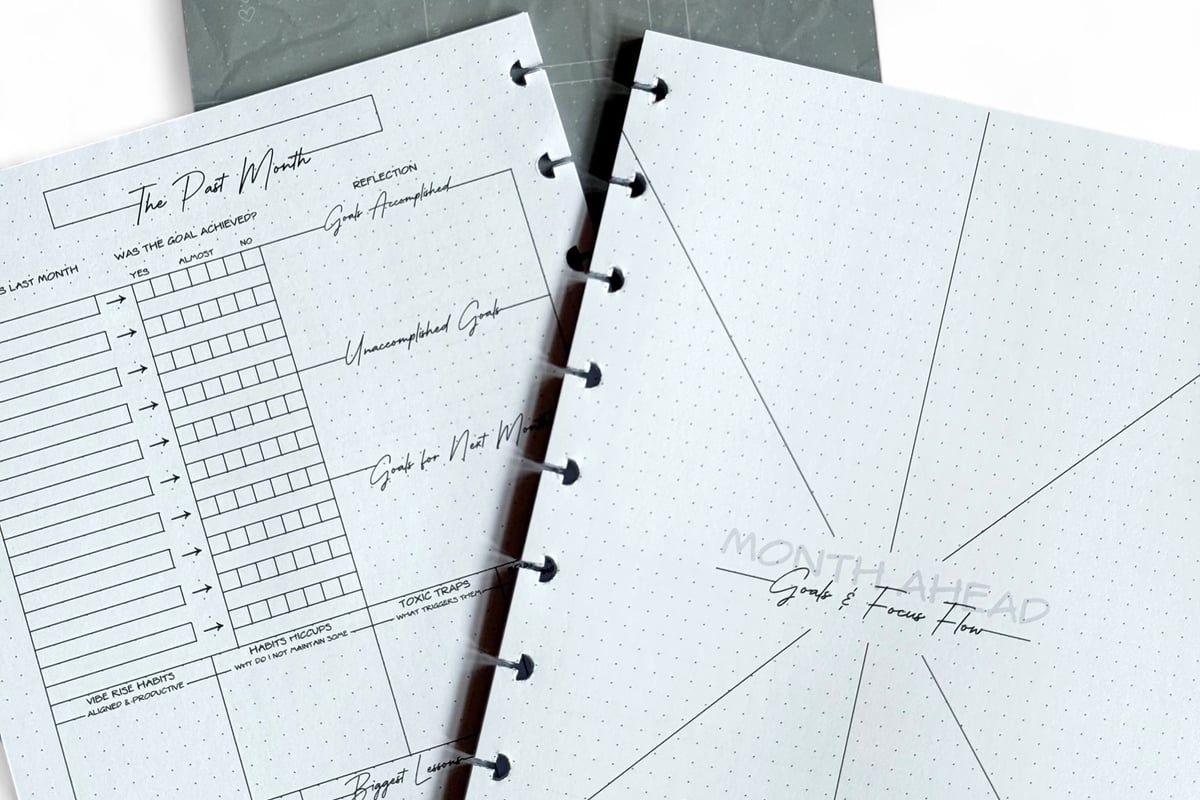 The Past Month
S LAST MONTH
WAS THE GOAL ACHIEVED?
YES ALMOST NO
REFLECTION
Goals Accomplished
Unaccomplished Goals
Goals for Next Month
TOXIC TRAPS
WHAT TRIGGERS THEM
HABITS HICCUPS
WHY DO I NOT MAINTAIN SOME
VIBE RISE HABITS
ALIGNED & PRODUCTIVE
Biggest Lessons
MONTH AHEAD
Goals & Focus Flow